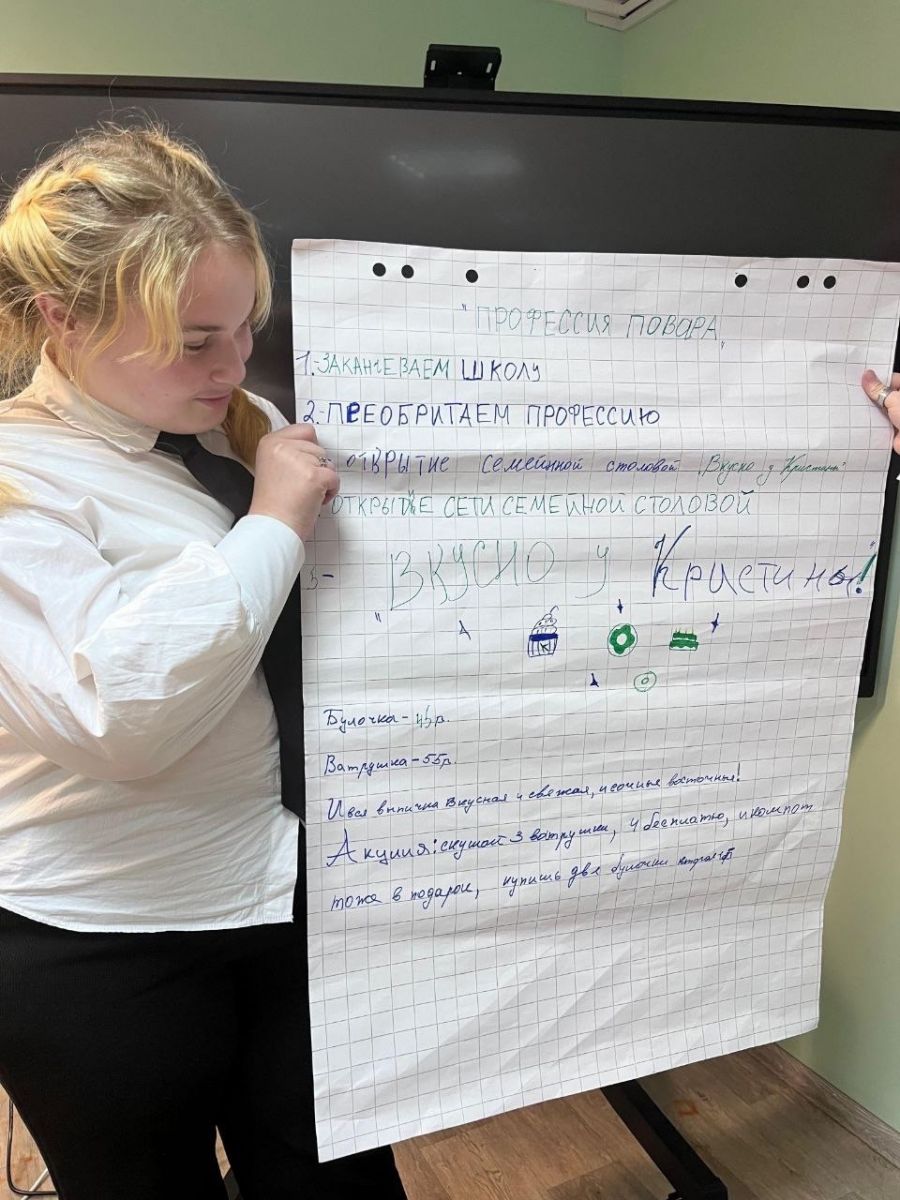 "ПРОФЕССИЯ ПОВАРА"
1.-ЗАКАНЧЕВАЕМ ШКОЛУ
2.-ПРЕОБРИТАЕМ ПРОФЕССИЮ
- ОТКРЫТИЕ СЕМЕЙННОЙ СТОЛОВОЙ "Вкусно у Кристины"
ОТКРЫТИЕ СЕТИ СЕМЕЙНОЙ СТОЛОВОЙ
5- "ВКУСНО У Кристины!"
Булочка - 45р.
Ватрушка - 55р
И вся выпичка вкусная и свежая, и сочные восточные!
Акция: скушай 3 ватрушки, 4 бесплатно, и компот
тоже в подарок, купишь две булочки